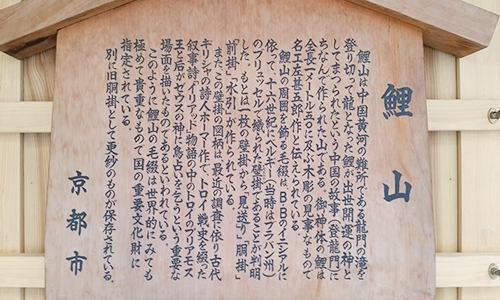 鯉山
鯉山は中国黄河の難所である龍門の滝を
登り切って龍となった鯉が出世開運の神と
してまつられたという中国の故事(登龍門)に
ちなんで作られた山である。御神体の鯉は
全長一メートル半にも及ぶ木彫の見事なもので
名工左甚五郎作と伝えられている。
鯉山の周囲を飾る毛綴は、B・Bのイニシアルに
依って、十六世紀にベルギー(当時はブラバン州)
のブリュッセルで織られた壁掛であることが判明
した。もとは一枚の壁掛から「見送り」「胴掛」
「前掛」「水引」が作られている。
また、この壁掛の図柄は、最近の調査に依り、古代
ギリシャの詩人ホーマー作で、トロイ戦史を綴った
叙事詩「イリアッド」物語の中のトロイのプリアモス
王と后がゼウスの神に鳥占いを乞うという重要な
場面を描いたものであるといわれている。
このように鯉山の毛綴は世界的にみても
極めて貴重なもので国の重要文化財に
指定されている。
別に旧胴掛として更紗のものが保存されている。
京都市